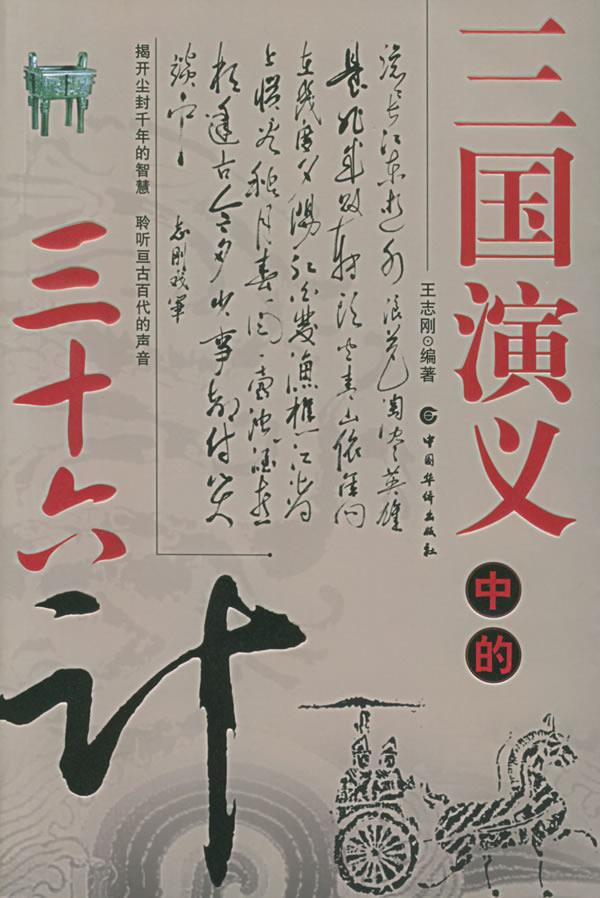 三国演义
中的
王志刚⊙编著
中国华侨出版社
滚滚长江东逝水浪花淘尽英雄
是非成败转头空青山依旧
在几度夕阳红白发渔樵江渚
上惯看秋月春风一壶浊酒喜
相逢古今多少事都付笑
谈中
志刚
揭开尘封千年的智慧 聆听亘古百代的声音
三十六
计